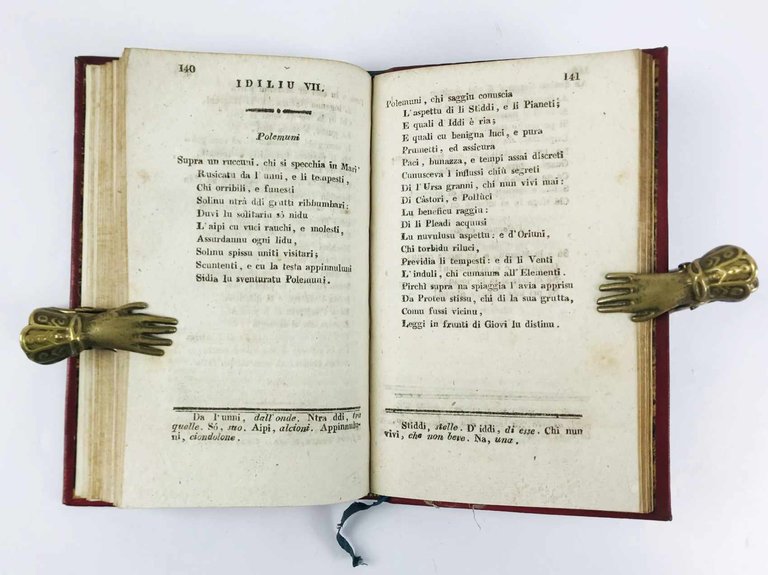 140
IDILIU VII.
Polemuni
Supra un ruccuni, chi si specchia in Mari
Rusicatu da l'unni, e li tempesti,
Chi orribili, e funesti
Solinu ntrà ddi grutti ribbumbari;
Duvi lu solitariu só nidu
L'aipi cu vuci rauchi, e molesti,
Assurdannu ogni lidu,
Solnu spissu uniti visitari;
Scuntenti, e cu la testa appinnuluni
Sidia lu sventuratu Polemuni.
Da l'unni, dall'onde. Ntra ddi, tra
quelle. Só, suo. Aipi, alcioni. Appinnulu-
ni, ciondolone.
141
Polemuni, chi saggiu conuscia
L'aspettu di li Stiddi, e li Pianeti;
E quali d'Iddi è ria;
E quali cu benigna luci, e pura
Prumetti, ed assicura
Paci, bunazza, e tempi assai discreti
Conusceva l'influssi chiù segreti
Di l'Ursa granni, chi nun vivi mai:
Di Càstori, e Pollùci
Lu beneficu raggiu:
Di li Pleadi acquusi
Lu nuvulusu aspettu: e d'Oriuni,
Chi torbidu riluci,
Previdia li tempesti: e di li Venti
L'induli, chi cumanna all'Elementi.
Pirchì supra na spiaggia l'avia apprisu
Da Proteu stissu, chi di la sua grutta,
Comu fussi vicinu,
Leggi in frunti di Giovi lu distinu.
Stiddi, stelle. D'iddi, di esse. Chi nun
vivi, che non beve. Na, una.